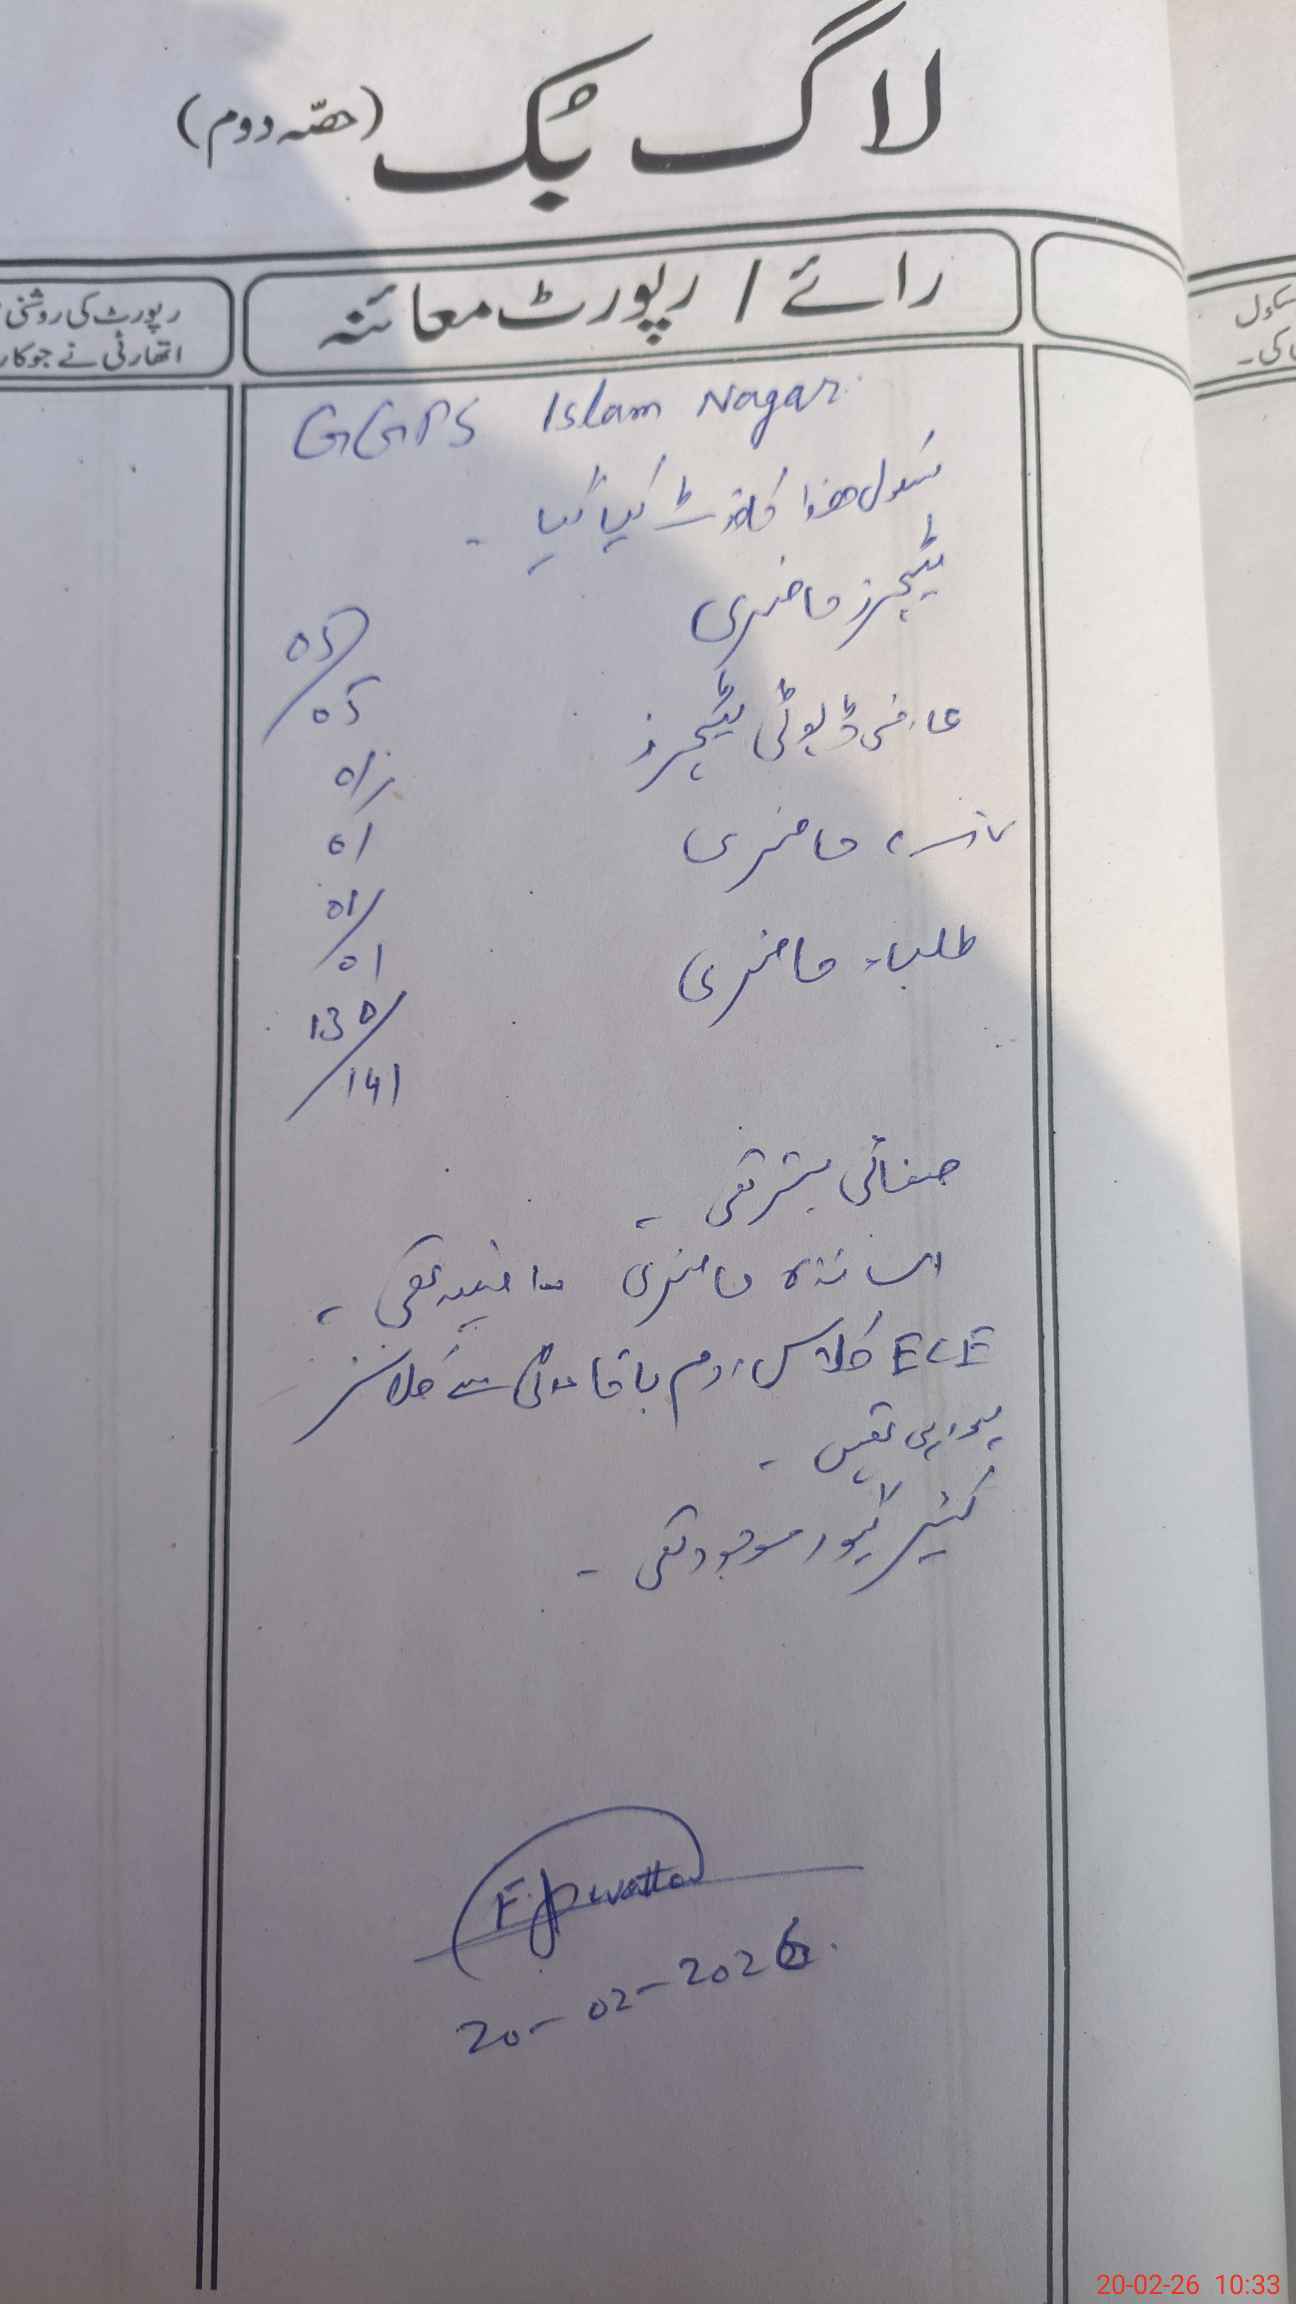 لاگ بُک (حصّہ دوم)
رائے / رپورٹ معائنہ
رپورٹ کی روشنی
اتھارٹی نے جو کار
سکول
کی۔
GGPS Islam Nagar.
سکول ھذا کا وزٹ کیا گیا ۔
ٹیچرز حاضری 05/05
عارضی ڈیوٹی ٹیچرز 01/01
حاضری 01/01
طلباء حاضری 130/141
صفائی بہتر تھی ۔
اساتذہ حاضری تھی ۔
ECE کلاس روم باقاعدگی سے کلاسز
ہو رہی تھیں ۔
کیئر گیور موجود تھی ۔
20-02-2026.
20-02-26 10:33